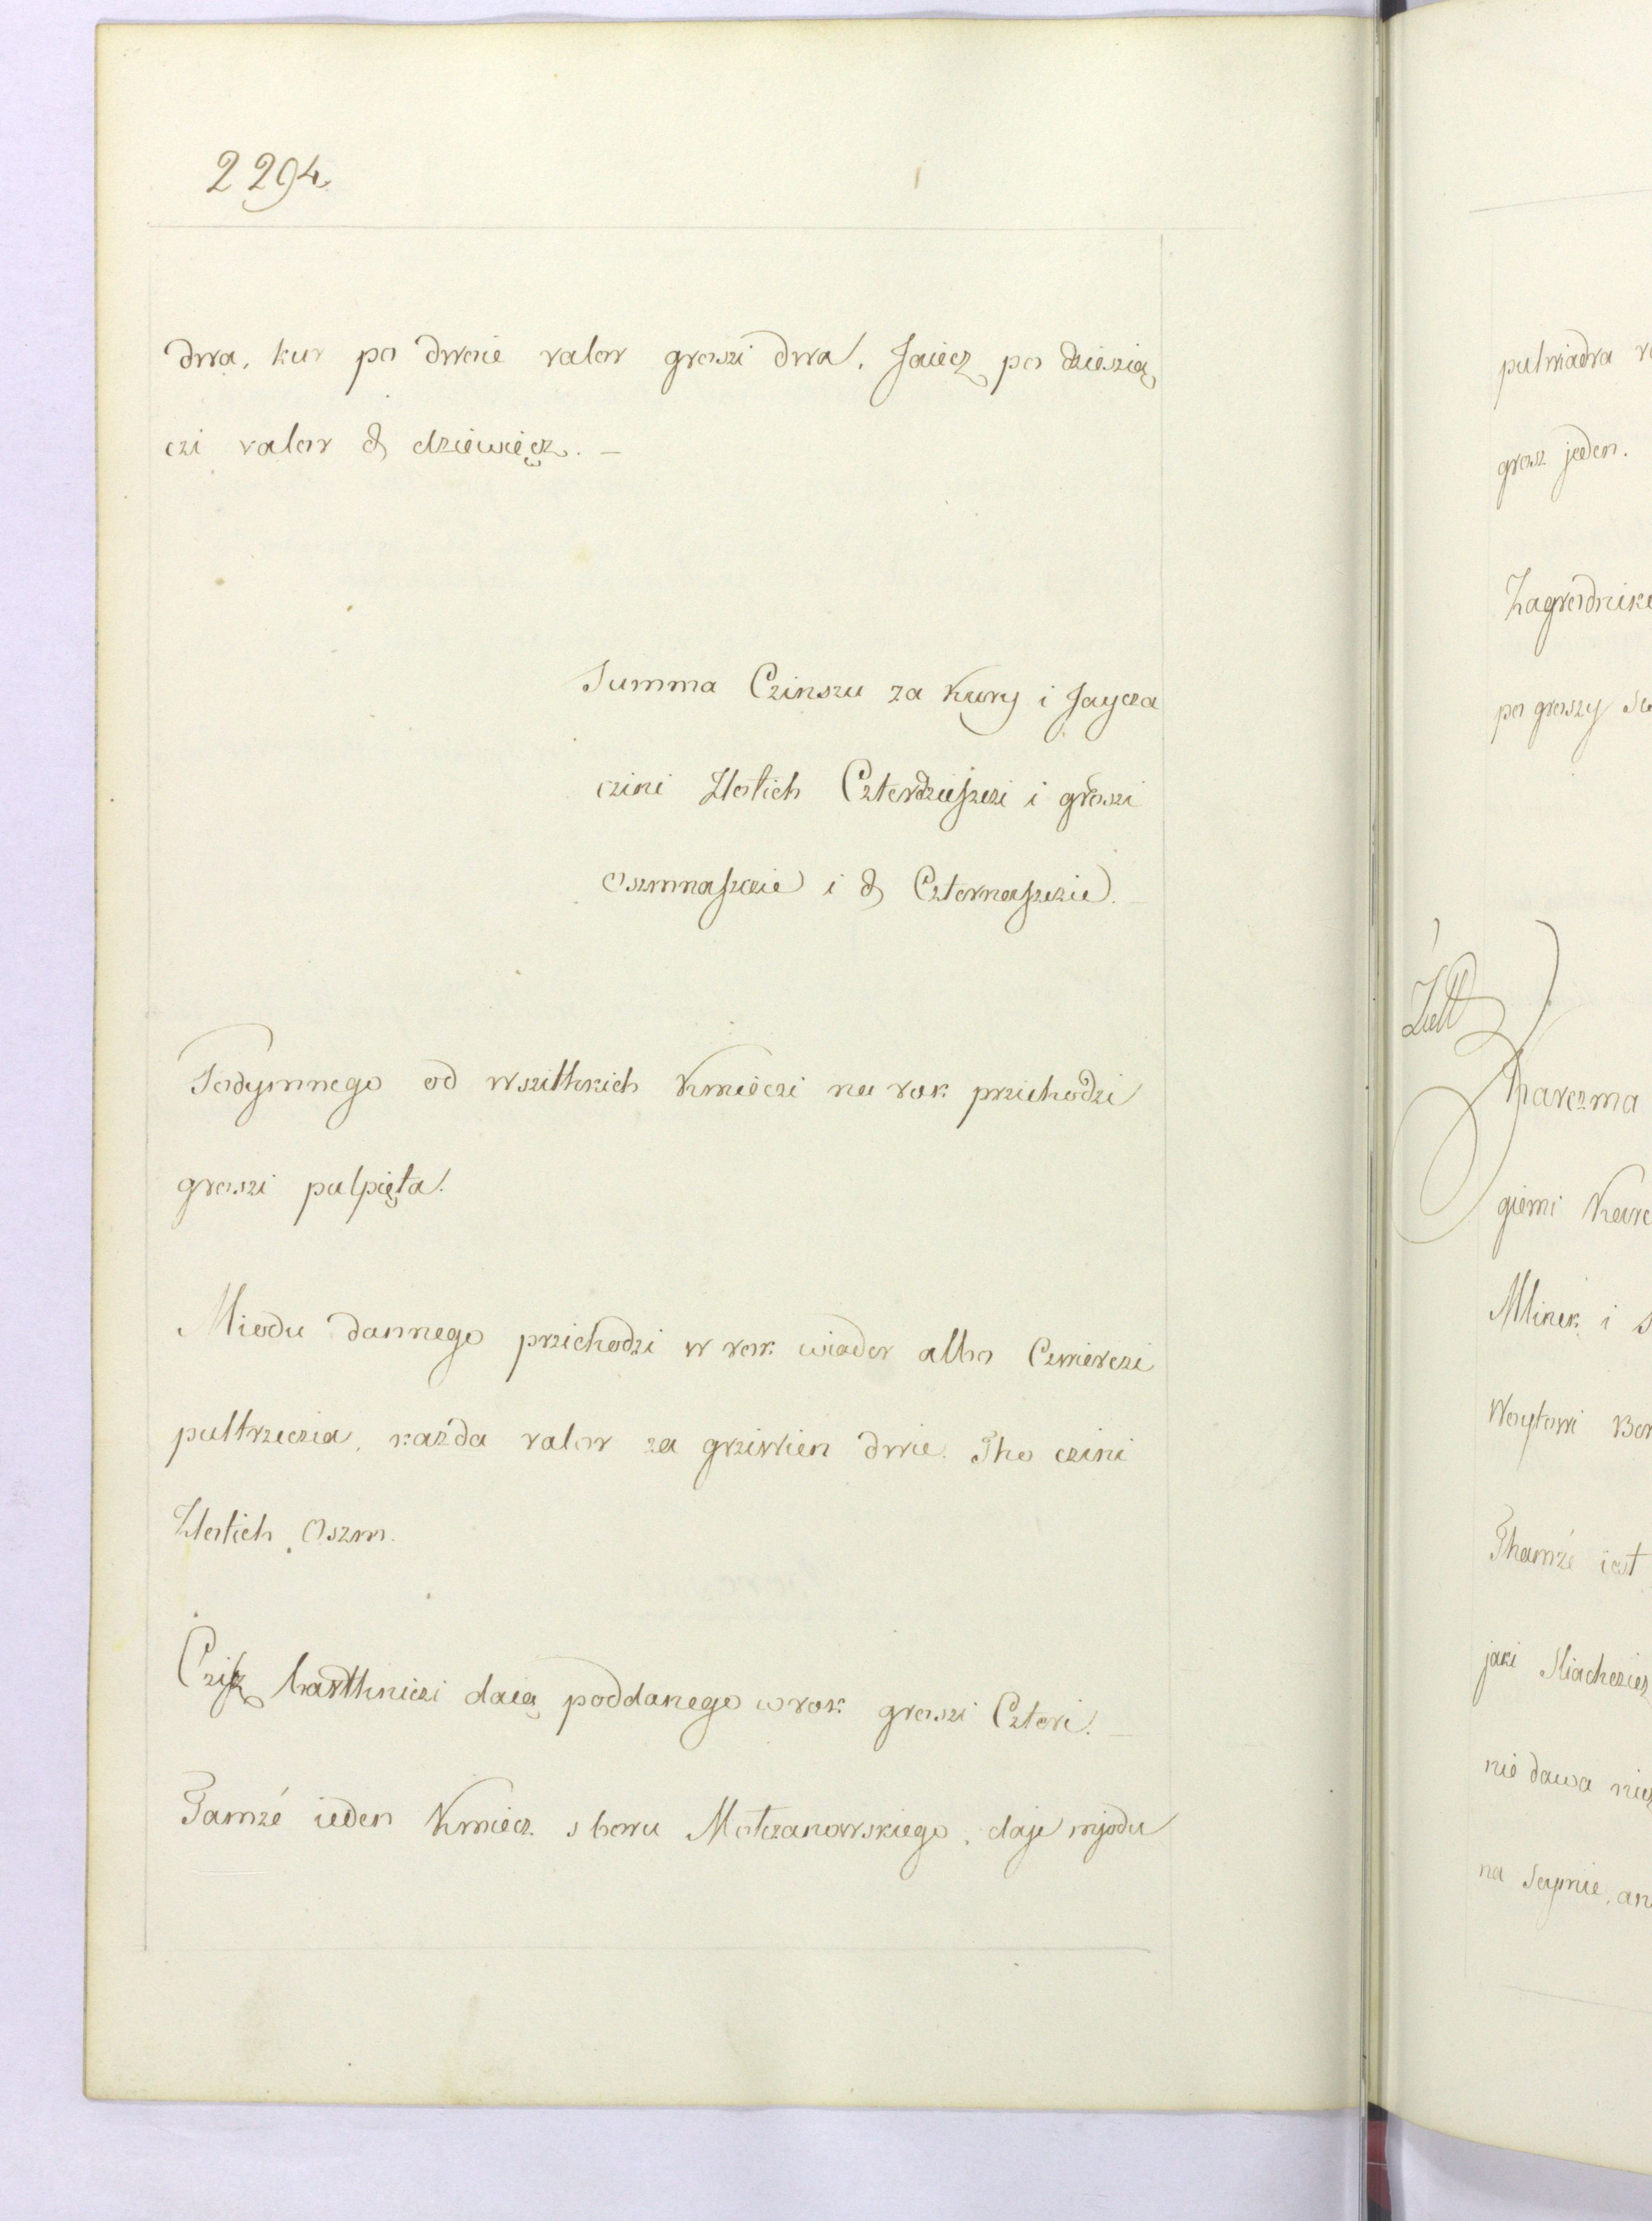 2294.
dwa, kur po dwoie valor groszi dwa, Jaiecz po dziesią
czi valor ₰ dziewięcz. –
Summa Czinszu za Kury i Jaycza
czini Złotich Czterdzieszczi i groszi
oszmnaszczie i ₰ Czternaszczie. –
Podymnego od wszithkich Kmieczi na rok przichodzi
groszi pulpięta.
Miodu dannego przichodzi w rok wiader albo Czwierczi
pultrzeczia, każda valor za grziwien dwie. Tho czini
Złotich Oszm.
Cziż barthniczi daią poddanego w rok groszi Cztori. –
Tamże ieden Kmiecz z boru Motczanowskiego, daje mjodu
pulwiadra
grosz jeden.
po groszy
Karczma
giemi
Mlinek i
Woytowi
Thamże iest
jaki
nie dawa
na Seymie,